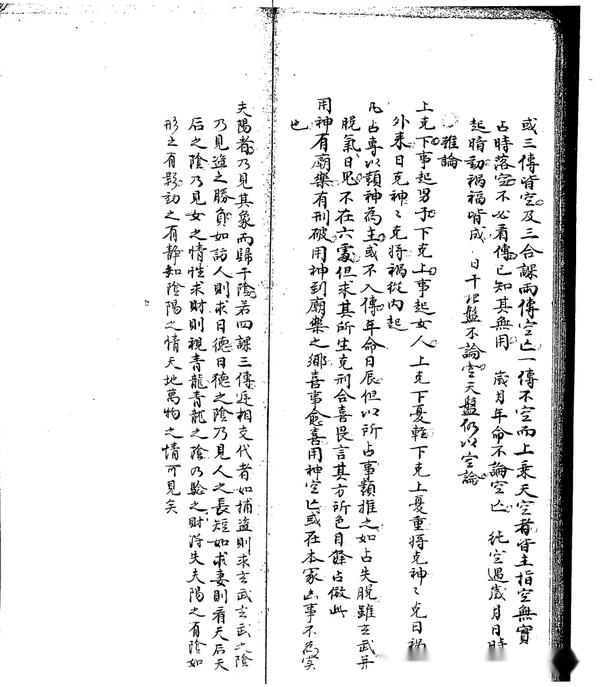 或三傳皆空及三合課兩傳空亡一傳不空而上乘天空者皆主指空無實
占時落空不必看傳已知其無用 歲月年命不論空亡 純空遇歲月日時
起暗動禍福皆成 日干地盤不論空天盤仍以空論
雜論
上克下事起男子下克上事起女人 上克下憂輕下克上憂重將克神々克日禍
外來日克神々克將禍從內起
凡占專以類神為主或不入傳年命日辰但以所占事類推之如占失脫雖玄武并
脫氣日鬼不在六處但求其所生克刑合喜畏言其方所色目餘占倣此
用神有廟樂有刑破用神到廟樂之鄉喜事愈喜用神空亡或在本家凶事不為災
也
夫陽者乃見其象而歸于陰若四課三傳遞相交代者如捕盜則求玄武玄武之陰
乃見進之勝負如訪人則求日德日德之陰乃見人之長短如求妻則看天后天
后之陰乃見女之情性求財則視青龍青龍之陰乃驗之財得失夫陽之有陰如
形之有影動之有靜知陰陽之情天地萬物之情可見矣